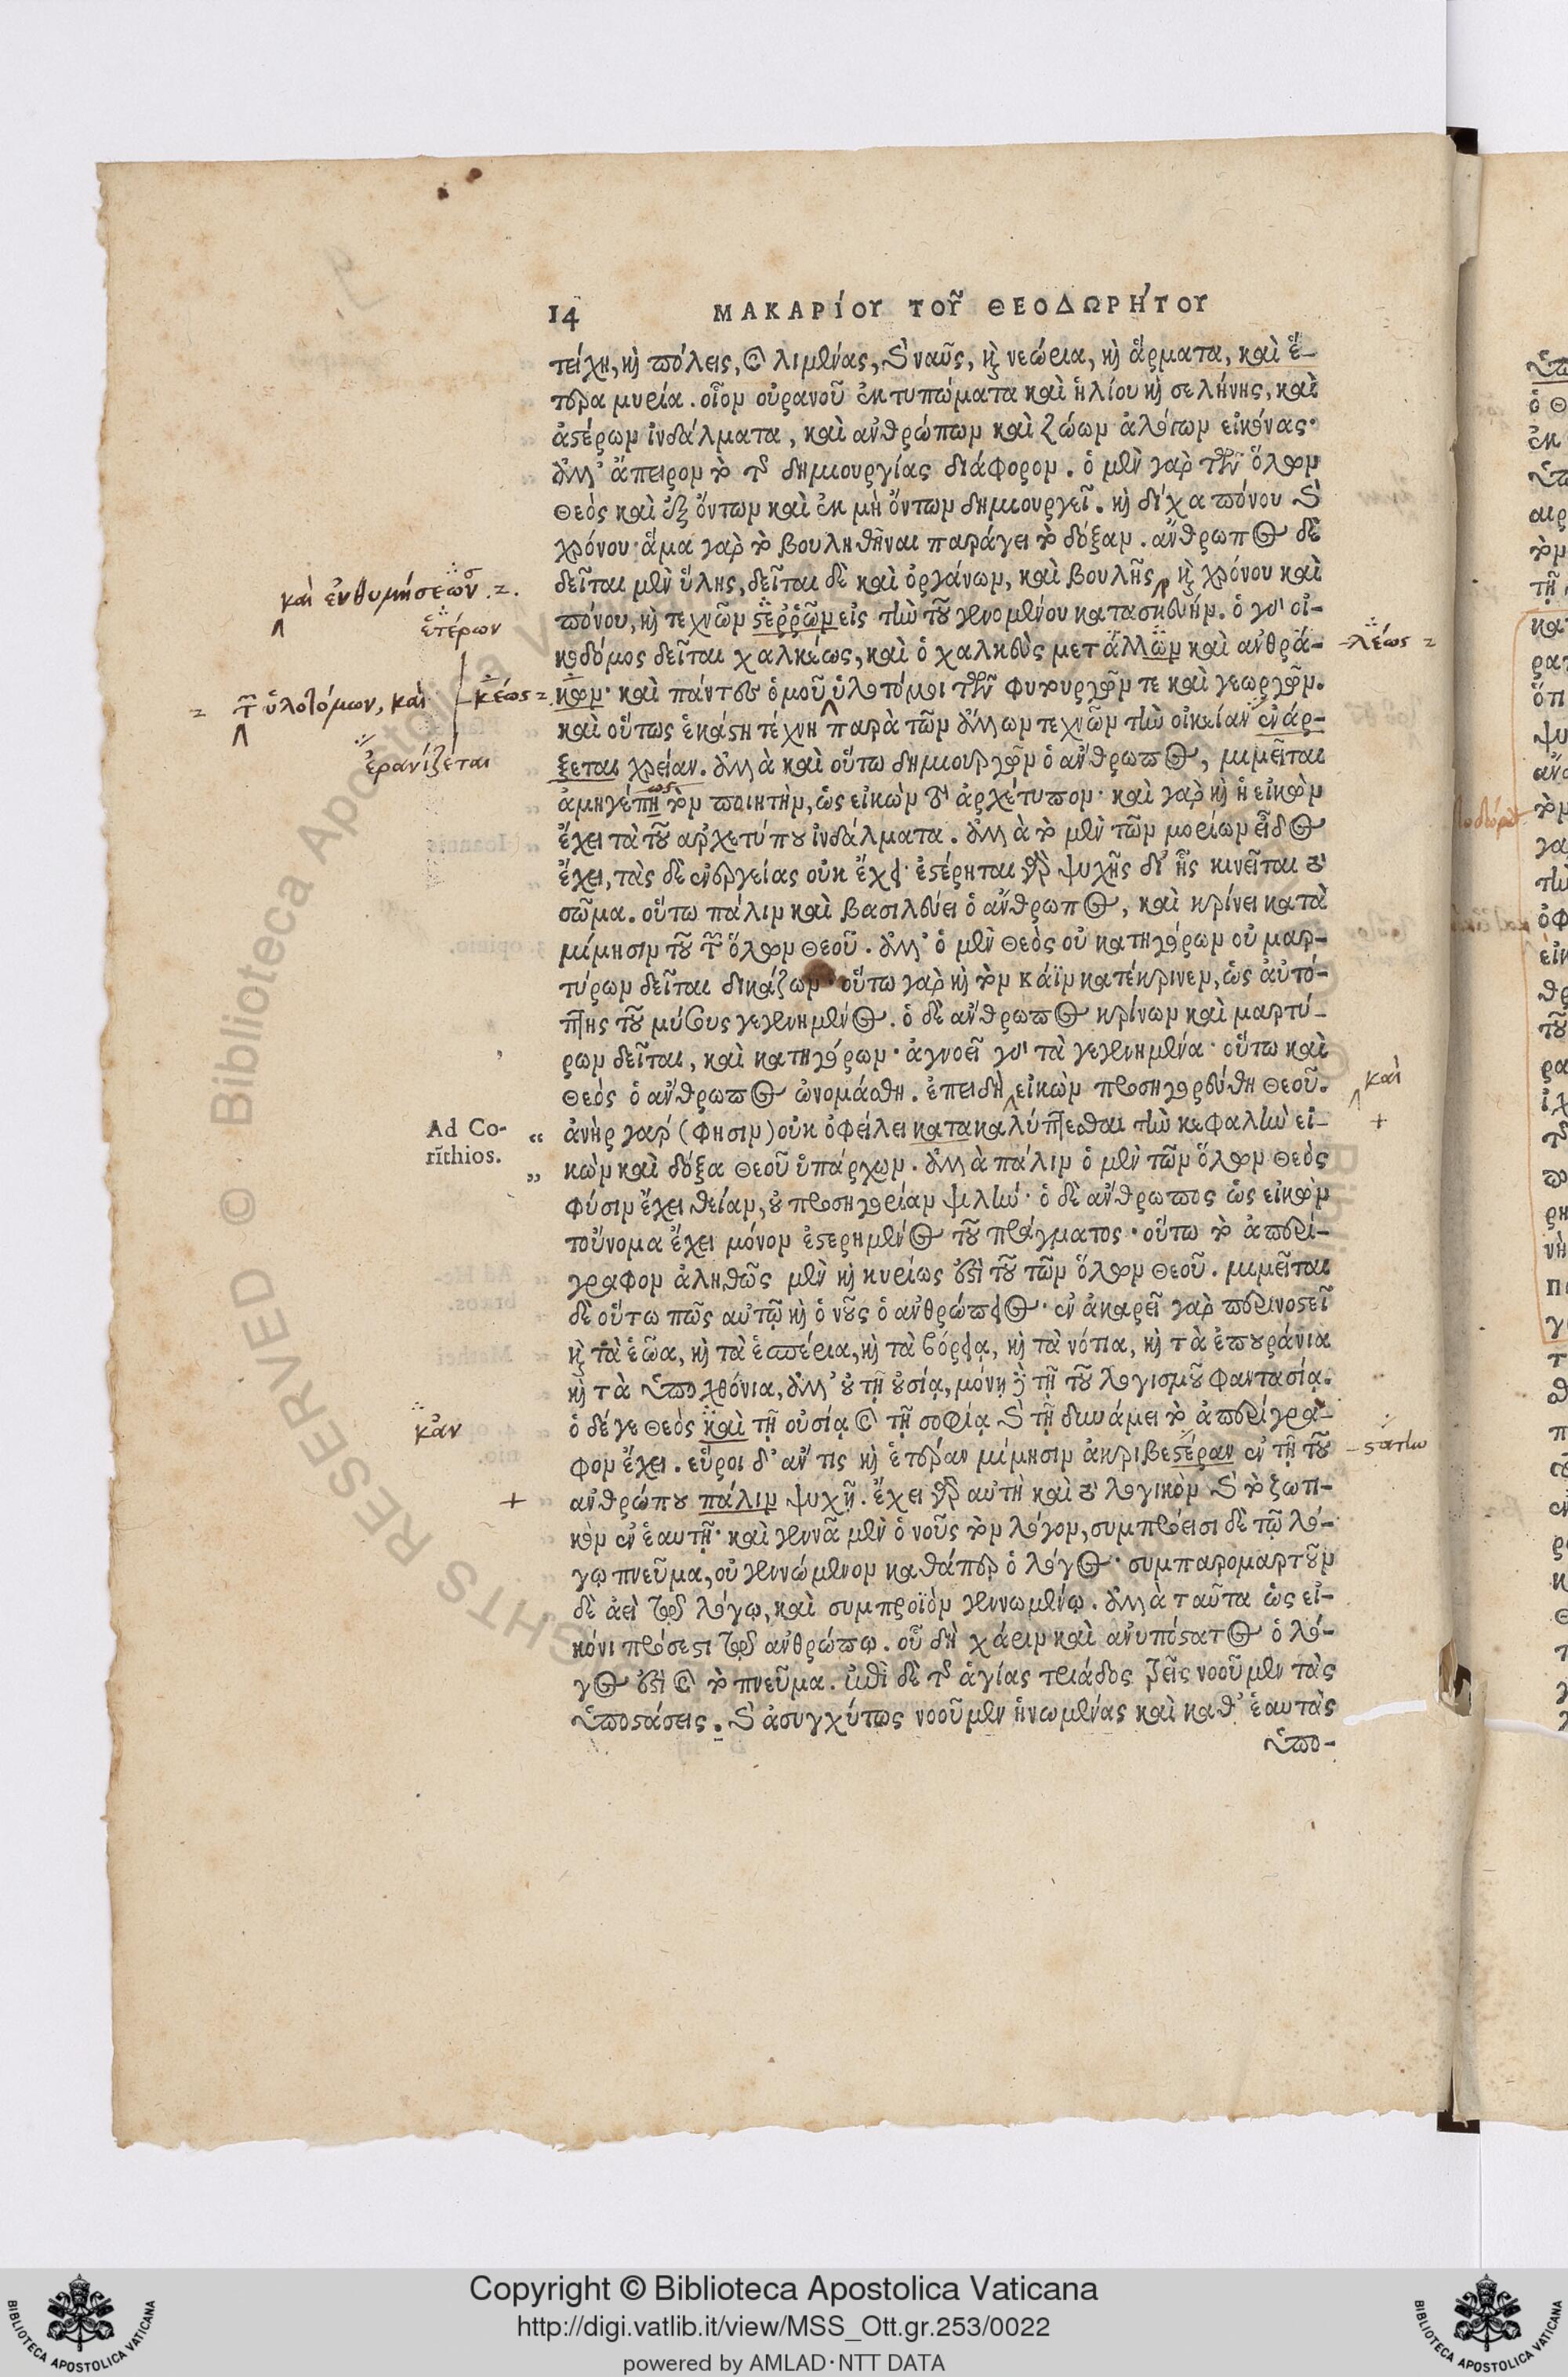 14 ΜΑΚΑΡίΟΥ ΤΟΥ͂ ΘΕΟΔΩΡΉΤΟΥ
τείχη, καὶ πόλεις, καὶ λιμένας, καὶ ναῦς, καὶ νεώρια, καὶ ἅρματα, καὶ ἕ-
τερα μυρία. οἷον οὐρανοῦ ἐκτυπώματα καὶ ἡλίου καὶ σελήνης, καὶ
ἀστέρων ἰνδάλματα, καὶ ἀνθρώπων καὶ ζώων ἀλόγων εἰκόνας·
ἀλλ’ ἄπειρον τὸ τῆς δημιουργίας διάφορον. ὁ μὲν γὰρ τῶν ὅλων
Θεὸς καὶ ἐξ ὄντων καὶ ἐκ μὴ ὄντων δημιουργεῖ. καὶ δίχα πόνου καὶ
χρόνου· ἅμα γὰρ τὸ βουληθῆναι παράγει τὸ δόξαν. ἄνθρωπος δὲ
δεῖται μὲν ὕλης, δεῖται δὲ καὶ ὀργάνων, καὶ βουλῆς, καὶ χρόνου καὶ
καὶ ἐνθυμήσεως
πόνου, καὶ τεχνῶν στερρῶν εἰς τὴν τοῦ γινομένου κατασκευήν. ὁ γὰρ οἰ-
ἑτέρων
κοδόμος δεῖται χαλκέως, καὶ ὁ χαλκεὺς μεταλλῶν καὶ ἀνθρά-
-λέως
κων· καὶ πάντες ὁμοῦ ὑλοτόμοι τῶν φυτουργῶν τε καὶ γεωργῶν.
τῶν ὑλοτόμων, καὶ
-κέως
καὶ οὕτως ἑκάστη τέχνη παρὰ τῶν ἄλλων τεχνῶν τὴν οἰκείαν ἐνάρ-
ξεται χρείαν. ἀλλὰ καὶ οὕτω δημιουργῶν ὁ ἄνθρωπος, μιμεῖται
ἐρανίζεται
ἀμηγέπη τὸν ποιητὴν, ὡς εἰκὼν τὸ ἀρχέτυπον· καὶ γὰρ καὶ ἡ εἰκὼν
ἔχει τὰ τοῦ ἀρχετύπου ἰνδάλματα. ἀλλὰ τὸ μὲν τῶν μορίων εἶδος
ἔχει, τὰς δὲ ἐνεργείας οὐκ ἔχει· ἐστέρηται γὰρ ψυχῆς δι’ ἧς κινεῖται τὸ
σῶμα. οὕτω πάλιν καὶ βασιλεύει ὁ ἄνθρωπος, καὶ κρίνει κατὰ
μίμησιν τοῦ τῶν ὅλων Θεοῦ. ἀλλ’ ὁ μὲν Θεὸς οὐ κατηγόρων οὐ μαρ-
τύρων δεῖται δικάζων· οὕτω γὰρ καὶ τὸν Κάϊν κατέκρινεν, ὡς αὐτό-
πτης τοῦ μύσους γεγενημένος. ὁ δὲ ἄνθρωπος κρίνων καὶ μαρτύ-
ρων δεῖται, καὶ κατηγόρων· ἀγνοεῖ γὰρ τὰ γεγενημένα· οὕτω καὶ
Θεὸς ὁ ἄνθρωπος ὠνομάσθη. ἐπειδὴ εἰκὼν προσηγορεύθη Θεοῦ.
καὶ
+
Ad Co-
rĩthios.
“ ἀνὴρ γάρ (φησιν) οὐκ ὀφείλει κατακαλύπτεσθαι τὴν κεφαλὴν εἰ-
„ κὼν καὶ δόξα Θεοῦ ὑπάρχων. ἀλλὰ πάλιν ὁ μὲν τῶν ὅλων Θεὸς
φύσιν ἔχει θείαν, οὐ προσηγορίαν ψιλήν· ὁ δὲ ἄνθρωπος ὡς εἰκὼν
τοὔνομα ἔχει μόνον ἐστερημένος τοῦ πράγματος· οὕτω τὸ ἀπερί-
γραφον ἀληθῶς μὲν καὶ κυρίως ἐστὶ τοῦ τῶν ὅλων Θεοῦ. μιμεῖται
δὲ οὕτω πῶς αὐτῷ καὶ ὁ νοῦς ὁ ἀνθρώπειος· ἐν ἀκαρεῖ γὰρ περινοστεῖ
καὶ τὰ ἑῷα, καὶ τὰ ἑσπέρια, καὶ τὰ βόρεια, καὶ τὰ νότια, καὶ τὰ ἐπουράνια
καὶ τὰ ὑποχθόνια, ἀλλ’ οὐ τῇ οὐσίᾳ, μόνῃ δὲ τῇ τοῦ λογισμοῦ φαντασίᾳ.
ὁ δέ γε Θεὸς καὶ τῇ οὐσίᾳ καὶ τῇ σοφίᾳ καὶ τῇ δυνάμει τὸ ἀπερίγρα-
κἂν
φον ἔχει. εὕροι δ’ ἄν τις καὶ ἑτέραν μίμησιν ἀκριβεστέραν ἐν τῇ τοῦ
-στάτην
+ ἀνθρώπου πάλιν ψυχῇ. ἔχει γὰρ αὐτὴ καὶ τὸ λογικὸν καὶ τὸ ζωτι-
κὸν ἐν ἑαυτῇ· καὶ γεννᾷ μὲν ὁ νοῦς τὸν λόγον, συμπρόεισι δὲ τῷ λό-
γῳ πνεῦμα, οὐ γεννώμενον καθάπερ ὁ λόγος· συμπαρομαρτοῦν
δὲ ἀεὶ τῷ λόγῳ, καὶ συμπροϊὸν γεννωμένῳ. ἀλλὰ ταῦτα ὡς εἰ-
κόνι πρόσεστι τῷ ἀνθρώπῳ. οὗ δὴ χάριν καὶ ἀνυπόστατος ὁ λό-
γος ἐστὶ καὶ τὸ πνεῦμα. ἐπὶ δὲ τῆς ἁγίας τριάδος τρεῖς νοοῦμεν τὰς
ὑποστάσεις. καὶ ἀσυγχύτως νοοῦμεν ἡνωμένας καὶ καθ’ ἑαυτὰς
ὑπο-
© Biblioteca Apostolica Vaticana
Copyright © Biblioteca Apostolica Vaticana
http://digi.vatlib.it/view/MSS_Ott.gr.253/0022
powered by AMLAD·NTT DATA
BIBLIOTECA APOSTOLICA VATICANA
BIBLIOTECA APOSTOLICA VATICANA